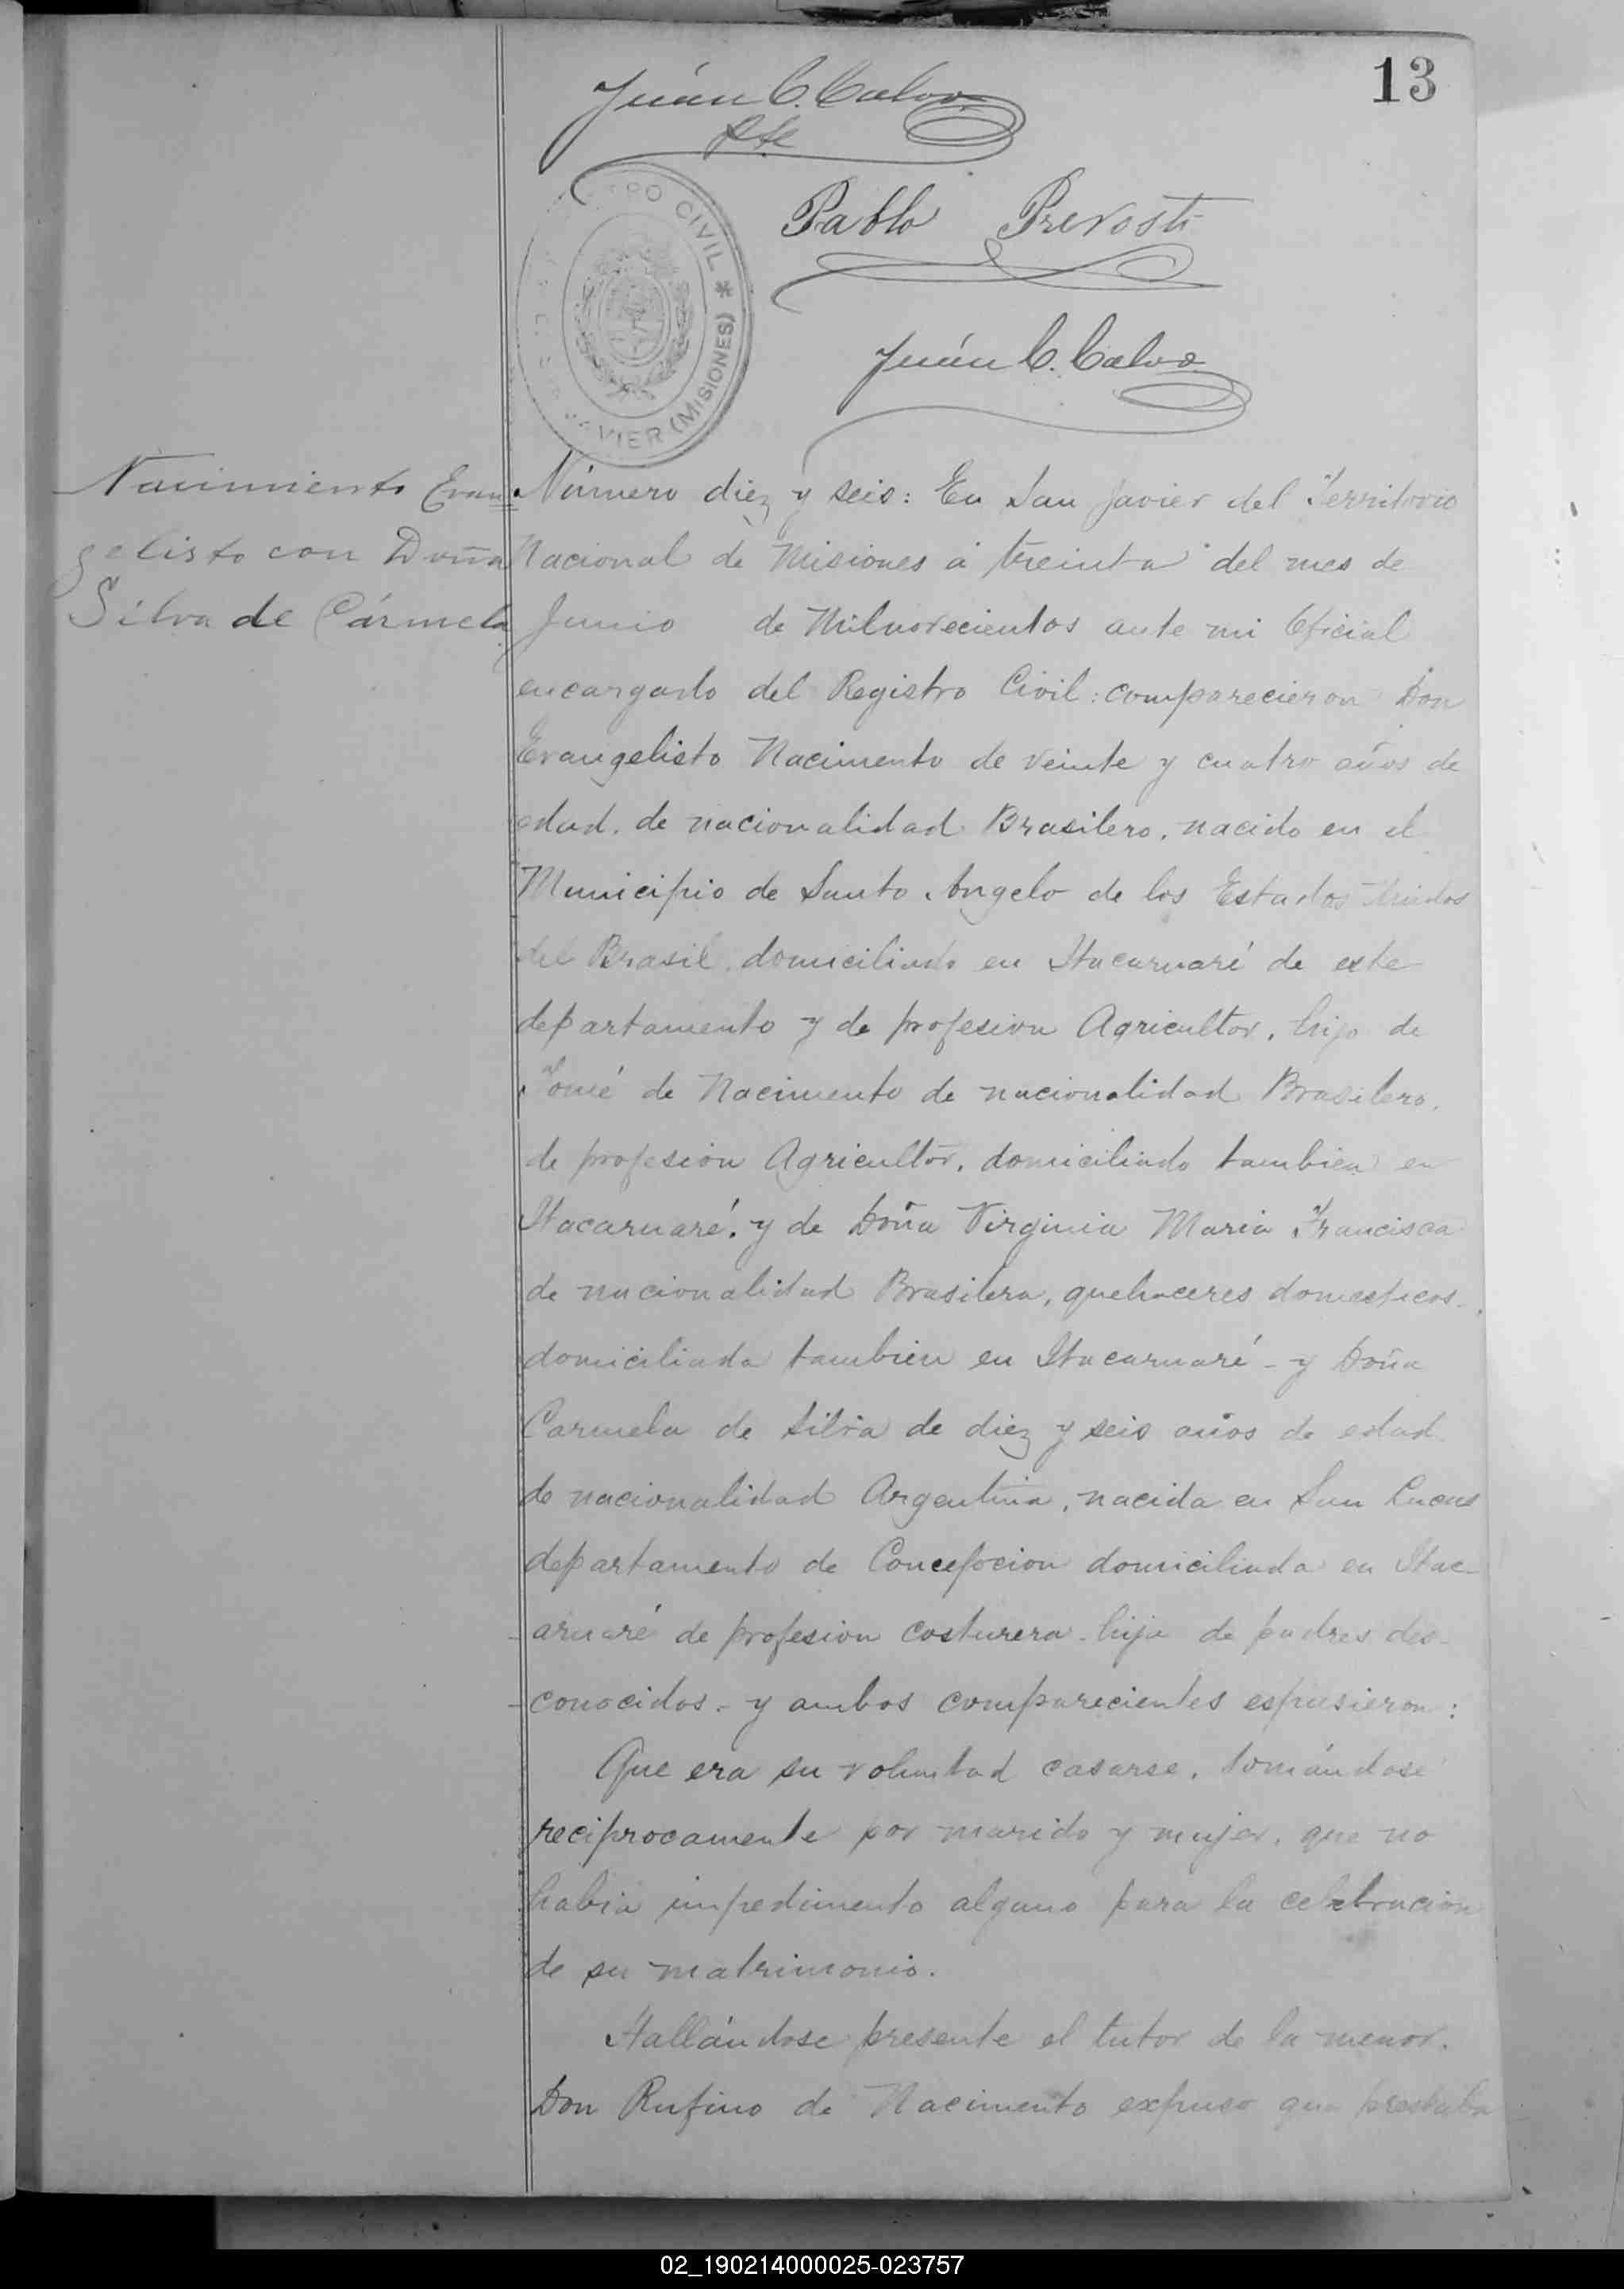 13
Juán C. Calvo
Pablo Prevosti
CIVIL * 
VIER (MISIONES)
Juán C. Calvo
Nacimiento Evan=
gelisto con Doña
Silva de Cármela
Número diez y seis: En San Javier del Territorio
Nacional de Misiones á treinta del mes de
Junio de Milnovecientos ante mi Oficial
encargado del Registro Civil: comparecieron Don
Evangelisto Nacimento de veinte y cuatro años de
edad, de nacionalidad Brasilero, nacido en el
Municipio de Santo Angelo de los Estados Unidos
del Brasil, domiciliado en Itacaruaré de este
departamento y de profesion Agricultor, hijo de
de Nacimento de nacionalidad Brasilero,
de profesion Agricultor, domiciliado tambien en
Itacaruaré, y de Doña Virginia Maria Francisca
de nacionalidad Brasilera, quehaceres domesticos.
domiciliada tambien en Itacaruaré - y Doña
Carmela de Silva de diez y seis años de edad
de nacionalidad Argentina, nacida en San Lucas
departamento de Concepcion domiciliada en Itac-
-aruaré de profesion costurera - hija de padres des-
-conocidos - y ambos comparecientes espusieron:
Que era su voluntad casarse, tomándose
reciprocamente por marido y mujer, que no
habia impedimento alguno para la celebracion
de su matrimonio.
Hallándose presente el tutor de la menor.
Don Rufino de Nacimento expuso que prestaba
02_190214000025-023757